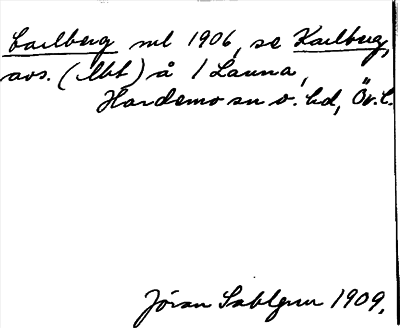 Carlberg ml 1906, se Karlberg,
avs. (lht) å 1 Launa,
Hardemo sn o. hd, Ör. l.
Jöran Sahlgren 1909.